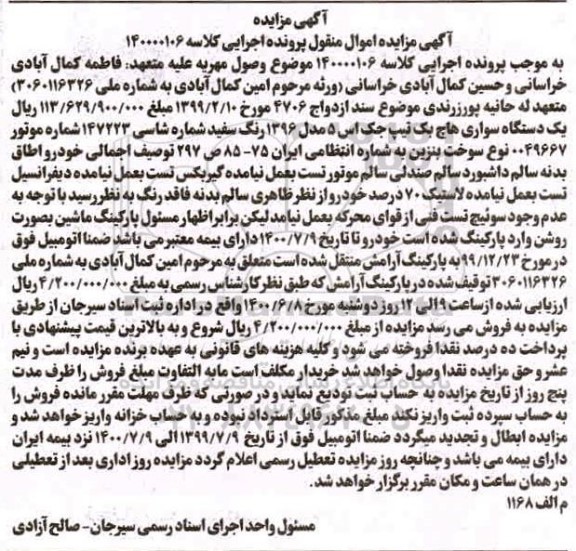 آگهی مزایده
آگهی مزایده اموال منقول پرونده اجرایی کلاسه ۱۴۰۰۰۰۱۰۶
به موجب پرونده اجرایی کلاسه ۱۴۰۰۰۰۱۰۶ موضوع وصول مهریه علیه متعهد: فاطمه کمال آبادی
خراسانی و حسین کمال آبادی خراسانی (ورثه مرحوم امین کمال آبادی به شماره ملی ۳۰۶۰۱۱۶۳۲۶)
متعهد له حانیه پورزرندی موضوع سند ازدواج ۴۷۰۶ مورخ ۱۳۹۹/۲/۱۰ مبلغ ۱۱۳/۶۲۹/۹۰۰/۰۰۰ ریال
یک دستگاه سواری هاچ بک تیپ جک اس ۵ مدل ۱۳۹۶ رنگ سفید شماره شاسی ۱۴۷۲۲۳ شماره موتور
۰۰۴۹۶۶۷ نوع سوخت بنزین به شماره انتظامی ایران ۷۵- ۸۵ ص ۲۹۷ توصیف اجمالی خودرو اطاق
بدنه سالم داشبورد سالم صندلی سالم موتور تست بعمل نیامده گیربکس تست بعمل نیامده دیفرانسیل
تست بعمل نیامده لاستیک ۷۰ درصد خودرو از نظر ظاهری سالم بدنه فاقد رنگ به نظر رسید با توجه به
عدم وجود سوئیچ تست فنی از قوای محرکه بعمل نیامد لیکن برابر اظهار مسئول پارکینگ ماشین بصورت
روشن وارد پارکینگ شده است خودرو تا تاریخ ۱۴۰۰/۷/۹ دارای بیمه معتبر می باشد ضمنا اتومبیل فوق
در مورخ ۹۹/۱۲/۲۳ به پارکینگ آرامش منتقل شده است متعلق به مرحوم امین کمال آبادی به شماره ملی
۳۰۶۰۱۱۶۳۲۶ توقیف شده در پارکینگ آرامش که طبق نظر کارشناس رسمی به مبلغ ۴/۲۰۰/۰۰۰/۰۰۰ ریال
ارزیابی شده از ساعت ۹ الی ۱۲ روز دوشنبه مورخ ۱۴۰۰/۶/۸ واقع در اداره ثبت اسناد سیرجان از طریق
مزایده به فروش می رسد مزایده از مبلغ ۴/۲۰۰/۰۰۰/۰۰۰ ریال شروع و به بالاترین قیمت پیشنهادی با
پرداخت ده درصد نقدا فروخته می شود و کلیه هزینه های قانونی به عهده برنده مزایده است و نیم
عشر و حق مزایده نقدا وصول خواهد شد خریدار مکلف است مابه التفاوت مبلغ فروش را ظرف مدت
پنج روز از تاریخ مزایده به حساب ثبت تودیع نماید و در صورتی که ظرف مهلت مقرر مانده فروش را
به حساب سپرده ثبت واریز نکند مبلغ مذکور قابل استرداد نبوده و به حساب خزانه واریز خواهد شد و
مزایده ابطال و تجدید میگردد ضمنا اتومبیل فوق از تاریخ ۱۳۹۹/۷/۹ الی ۱۴۰۰/۷/۹ نزد بیمه ایران
دارای بیمه می باشد و چنانچه روز مزایده تعطیل رسمی اعلام گردد مزایده روز اداری بعد از تعطیلی
در همان ساعت و مکان مقرر برگزار خواهد شد.
م الف ۱۱۶۸
مسئول واحد اجرای اسناد رسمی سیرجان- صالح آزادی